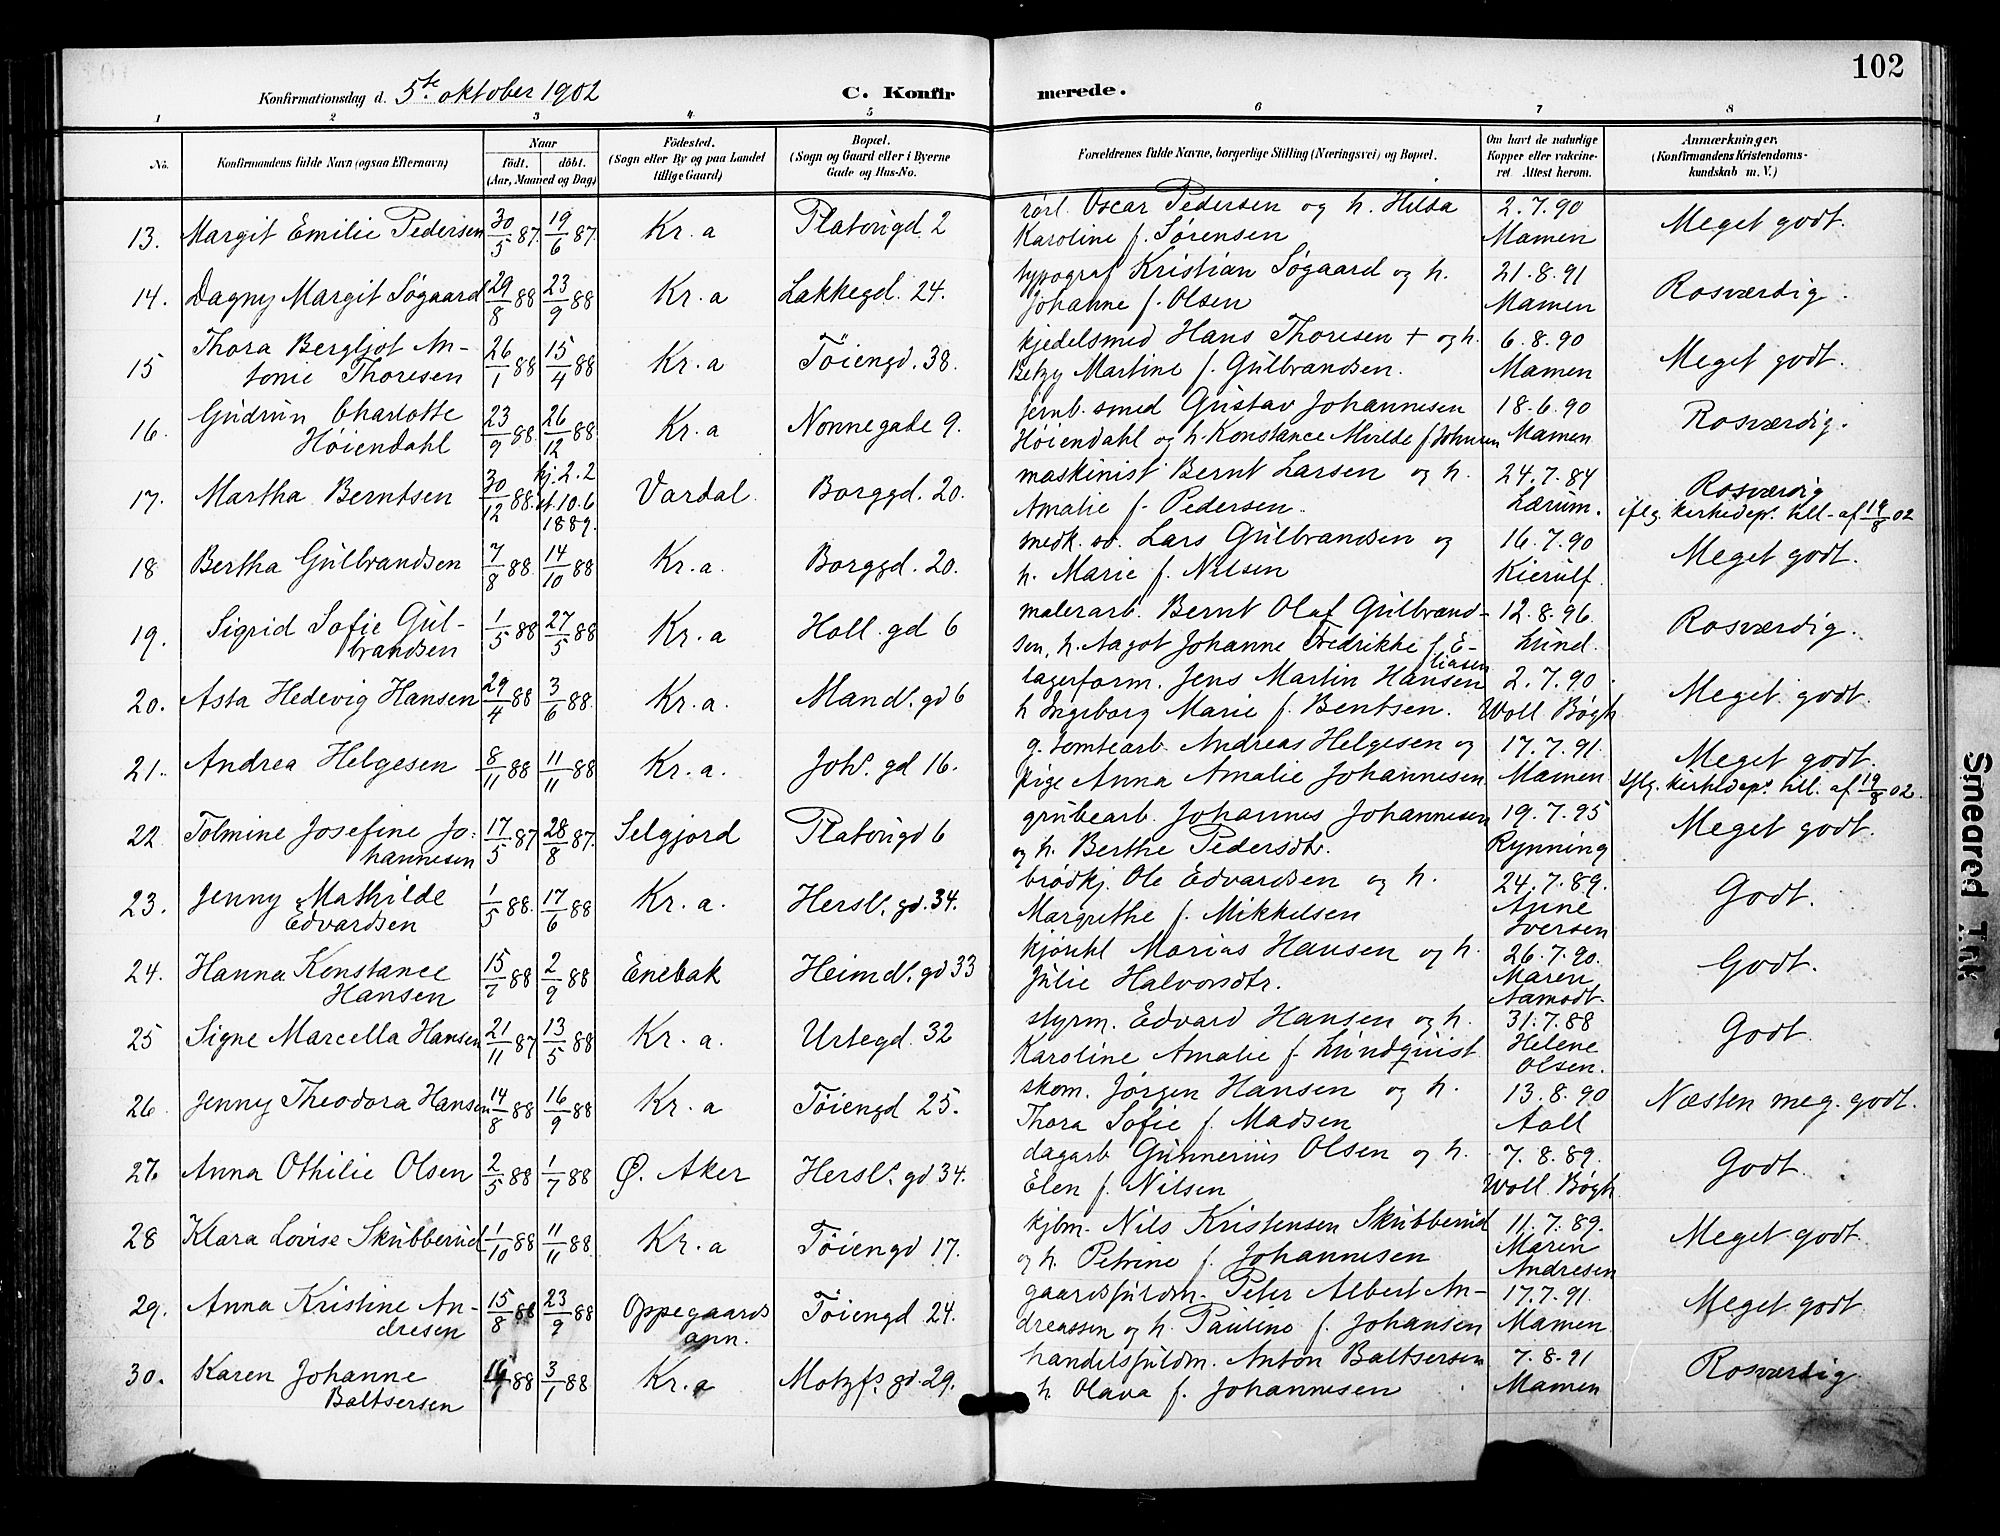 102
Konfirmationsdag d. 5te oktober 1902 C. Konfirmerede.
1 2 3 4 5 6 7 8
No. Konfirmandens fulde Navn (ogsaa Efternavn) Naar født. døbt. (Aar, Maaned og Dag) Fødested. (Sogn eller By og paa Landet tillige Gaard) Bopæl. (Sogn og Gaard eller i Byerne Gade og Hus-No. Forældrenes fulde Navne, borgerlige Stilling (Næringsvei) og Bopæl. Om havt de naturlige Kopper eller vakcineret. Attest herom. Anmærkninger, (Konfirmandens Kristendomskundskab m. V.)
13. Margit Emilie Pedersen 30/5 87. 19/6 87. Kr.a Platougd. 2 rørl. Oscar Pedersen og h. Hilda 2.7.90 Meget godt.
Karoline f. Sørensen Mamen
14. Dagny Margit Søgaard 29/8 88 23/9 88 Kr.a Lakkegd. 24. typograf Kristian Søgaard og h. 21.8.91 Rosværdig.
Johanne f. Olsen Mamen
15 Thora Bergljot An- 26/1 88 15/4 88 Kr.a Tøiengd. 38. kjedelsmed Hans Thoresen + og h. 6.8.90 Meget godt.
tonie Thoresen Betzy Martine f. Gulbrandsen. Mamen
16. Gudrun Charlotte 23/9 88. 26/12 88. Kr.a Nonnegade 9. jernb. smed Gustav Johannesen 18.6.90 Rosværdig.
Høiendahl Høiendahl og h. Konstance Mirde f. Johnsen Mamen
17. Martha Berntsen 30/12 88. hj. 2.2 st. 10.6 1889. Vardal. Borggd. 20. maskinist Bernt Larsen og h. 24.7.84 Rosværdig
Amalie f. Pedersen. Lærum. iflg. kirkedep. till. af 19/8 02
18 Bertha Gulbrandsen 7/8 88. 14/10 88 Kr.a. Borggd. 20. smedk. sv. Lars Gulbrandsen og 16.7.90 Meget godt.
h. Marie f. Nilsen Kierulf.
19. Sigrid Sofie Gul- 1/5 88 27/5 88 Kr.a Holl. gd 6 malerarb. Bernt Olaf Gulbrand- 12.8.96 Rosværdig.
brandsen sen, h. Aagot Johanne Fredrikke f. E- Lund.
liasen
20. Asta Hedevig Hansen 29/4 88 3/6 88. Kr.a. Mandl. gd 6 lagerform. Jens Martin Hansen 2.7.90. Meget godt.
h Ingeborg Marie f. Bentsen. Woll Bøgh
21. Andrea Helgesen 8/11 88 11/11 88 Kr.a. Johs. gd 16. g. tomtearb. Andreas Helgesen og 17.7.91. Meget godt.
pige Anna Amalie Johannesen Mamen iflg. kirkedep. till. af 19/8 02.
22 Tolmine Josefine Jo- 17/5 87 28/8 87. Selgjord Platougd 6 grubearb. Johannes Johannesen 19.7.95 Meget godt.
hannesen og h. Berthe Pedersdtr. Rynning
23. Jenny Mathilde 1/5 88. 17/6 88 Kr.a. Hersl. gd. 34. brødkj. Ole Edvardsen og h. 24.7.89. Godt.
Edvardsen Margrethe f. Mikkelsen Anne Iversen
24. Hanna Konstance 15/7 88 2/9 88 Enebak Heimdl. gd 33 Marias Hansen og h. 26.7.90. Godt.
Hansen Julie Halvorsdtr. Maren Aamodt.
25 Signe Marcella Hansen 21/11 87 13/5 88 Kr.a. Urtegd. 32 styrm. Edvard Hansen og h. 31.7.88 Godt.
Karoline Amalie f. Lundquist Helene Olsen.
26. Jenny Theodora Hansen 14/8 88 16/9 88 Kr.a Tøiengd 25. skom. Jørgen Hansen og h. 13.8.90 Næsten meg. godt.
Thora Sofie f. Madsen Aall
27. Anna Othilie Olsen 2/5 88 1/7 88 Ø. Aker Hersl. gd 34. dagarb Gunnerius Olsen og h. 7.8.89. Godt.
Elen f. Nilsen Woll Bøgh
28 Klara Lovise Skubberud 1/10 88 11/11 88. Kr.a Tøiengd 17. kjbm. Nils Kristensen Skubberud 11.7.89. Meget godt.
og h. Petrine f. Johannesen Maren Andresen
29. Anna Kristine An- 15/8 88 23/9 88 Oppegaards Tøiengd 24. gaardsfuldm. Peter Albert An- 17.7.91. Meget godt.
dresen ann. dreassen og h. Pauline f. Johansen Mamen
30. Karen Johanne 88 3/1 88 Kr.a Motzfs. gd. 29. handelsfuldm. Anton Baltsersen 7.8.91 Rosværdig
Baltsersen h Olava f. Johannesen Mamen
Smeared Ink